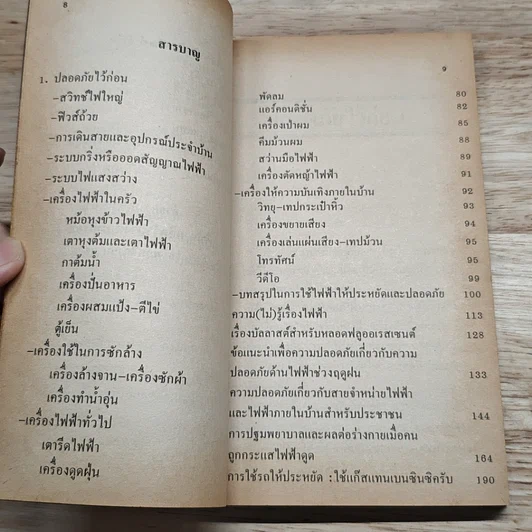 8
สารบาญ
1. ปลอดภัยไว้ก่อน
-สวิทช์ไฟใหญ่
-ฟิวส์ถ้วย
-การเดินสายและอุปกรณ์ประจำบ้าน
-ระบบกริ่งหรือออดสัญญาณไฟฟ้า
-ระบบไฟแสงสว่าง
-เครื่องไฟฟ้าในครัว
หม้อหุงข้าวไฟฟ้า
เตาหุงต้มและเตาไฟฟ้า
กาต้มน้ำ
เครื่องปั่นอาหาร
เครื่องผสมแป้ง-ตีไข่
ตู้เย็น
-เครื่องใช้ในการซักล้าง
เครื่องล้างจาน-เครื่องซักผ้า
เครื่องทำน้ำอุ่น
-เครื่องไฟฟ้าทั่วไป
เตารีดไฟฟ้า
เครื่องดูดฝุ่น
9
พัดลม 80
แอร์คอนดิชั่น 82
เครื่องเป่าผม 85
คีมม้วนผม 88
สว่านมือไฟฟ้า 89
เครื่องตัดหญ้าไฟฟ้า 91
-เครื่องให้ความบันเทิงภายในบ้าน 92
วิทยุ-เทปกระเป๋าหิ้ว 93
เครื่องขยายเสียง 94
เครื่องเล่นแผ่นเสียง-เทปม้วน 95
โทรทัศน์ 95
วีดีโอ 99
-บทสรุปในการใช้ไฟฟ้าให้ประหยัดและปลอดภัย 100
ความ(ไม่)รู้เรื่องไฟฟ้า 113
เรื่องบัลลาสต์สำหรับหลอดฟลูออเรสเซนต์ 128
ข้อแนะนำเพื่อความปลอดภัยเกี่ยวกับความ
ปลอดภัยด้านไฟฟ้าช่วงฤดูฝน 133
ความปลอดภัยเกี่ยวกับสายจำหน่ายไฟฟ้า
และไฟฟ้าภายในบ้านสำหรับประชาชน 144
การปฐมพยาบาลและผลต่อร่างกายเมื่อคน
ถูกกระแสไฟฟ้าดูด 164
การใช้รถให้ประหยัด : ใช้แก๊สแทนเบนซินซิครับ 190